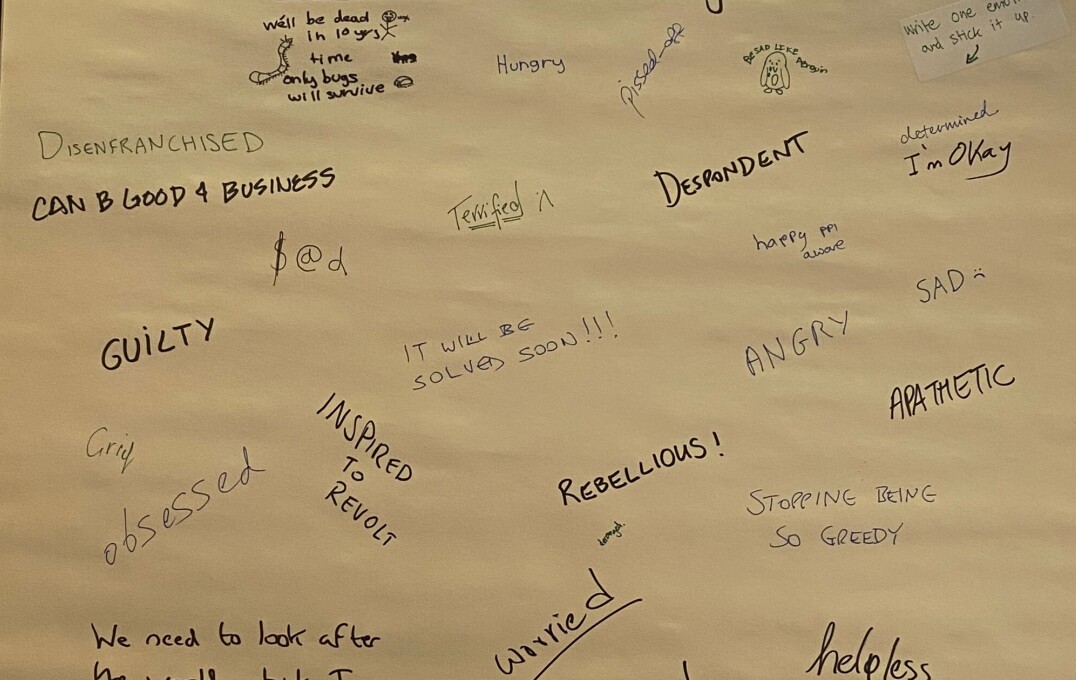 we'll be dead
in 10 yrs
time
only bugs
will survive
Hungry
pissed-off
BE SAD LIKE
Penguin
write one
and stick it up.
DISENFRANCHISED
determined
I'm OKay
CAN B GOOD 4 BUSINESS
Terrified
DESPONDENT
happy ppl
aware
$@d
SAD
GUILTY
IT WILL BE
SOLVED SOON!!!
ANGRY
APATHETIC
INSPIRED
TO
REVOLT
obsessed
REBELLIOUS!
STOPPING BEING
SO GREEDY
worried
We need to look after
helpless